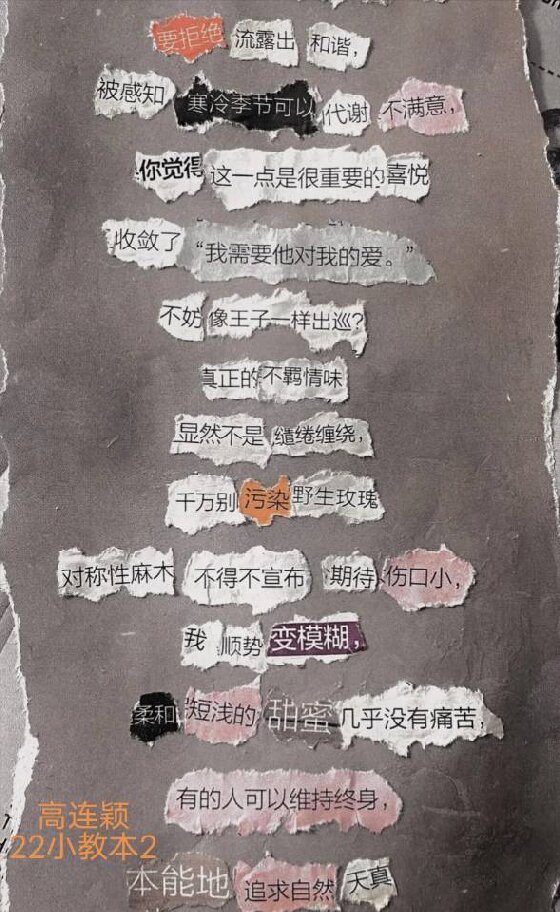 要拒绝 流露出 和谐，
被感知 寒冷季节可以 代谢 不满意，
你觉得 这一点是很重要的喜悦
收敛了“我需要他对我的爱。”
不妨 像王子一样出巡？
真正的不羁情味
显然不是 缱绻缠绕，
千万别 污染 野生玫瑰
对称性麻木 不得不宣布 期待 伤口小，
我 顺势 变模糊，
柔和 短浅的 甜蜜 几乎没有痛苦，
有的人可以维持终身，
高连颖
22小教本2
本能地 追求自然 天真